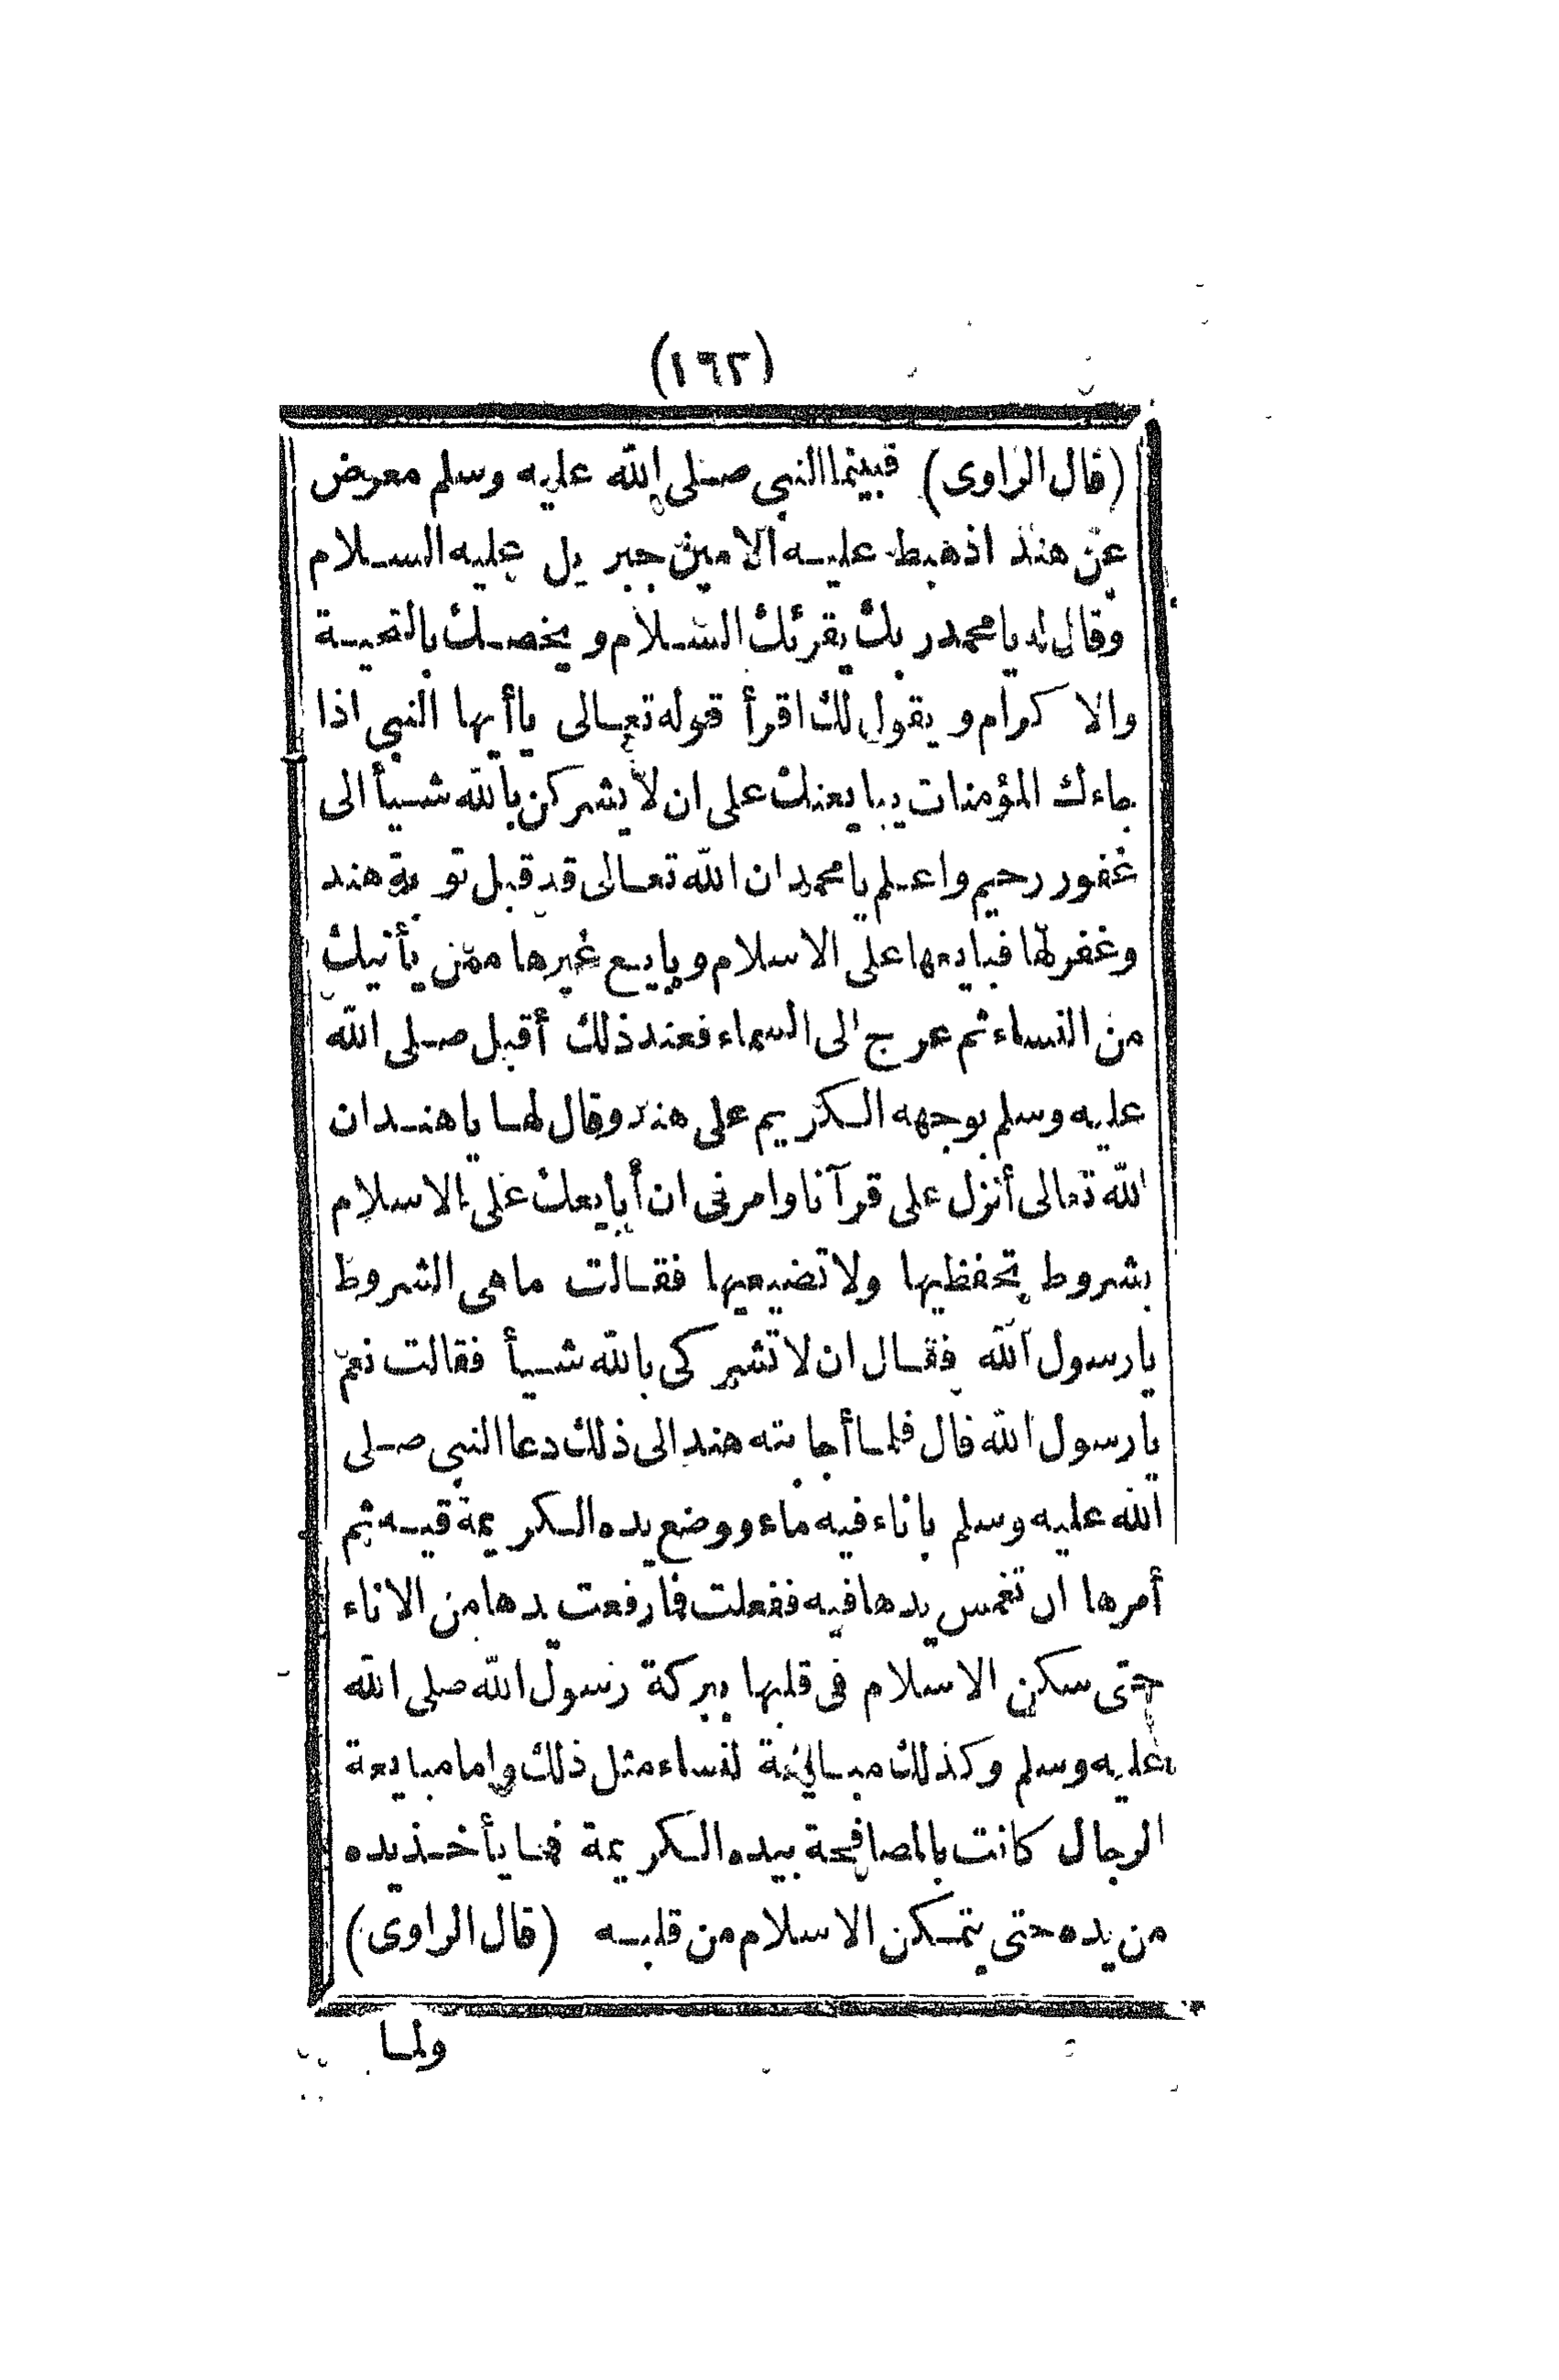 (١٦٢)
(قال الراوى) فبينما النبي صلى الله عليه وسلم معرض
عن هند اذ هبط عليه الامين جبريل عليه السلام
وقال له يا محمد ربك يقرئك السلام ويخصك بالتحية
والاكرام ويقول لك اقرأ قوله تعالى ياأيها النبي اذا
جاءك المؤمنات يبايعنك على ان لا يشركن بالله شيأ الى
غفور رحيم واعلم يا محمد ان الله تعالى قد قبل توبة هند
وغفر لها فبايعها على الاسلام وبايع غيرها ممن يأتيك
من النساء ثم عرج الى السماء فعند ذلك أقبل صلى الله
عليه وسلم بوجهه الكريم على هند وقال لها يا هند ان
الله تعالى أنزل على قرآنا وامرنى ان أبايعك على الاسلام
بشروط تحفظيها ولا تضيعيها فقالت ما هى الشروط
يا رسول الله فقال ان لا تشركى بالله شيأ فقالت نعم
يا رسول الله قال فلما أجابته هند الى ذلك دعا النبي صلى
الله عليه وسلم باناء فيه ماء ووضع يده الكريمة فيه ثم
أمرها ان تغمس يدها فيه ففعلت فما رفعت يدها من الاناء
حتى سكن الاسلام فى قلبها ببركة رسول الله صلى الله
عليه وسلم وكذلك مبايعة لنساء مثل ذلك واما مبايعة
الرجال كانت بالمصافحة بيده الكريمة فما يأخذ يده
من يده حتى يتمكن الاسلام من قلبه (قال الراوى)
ولما